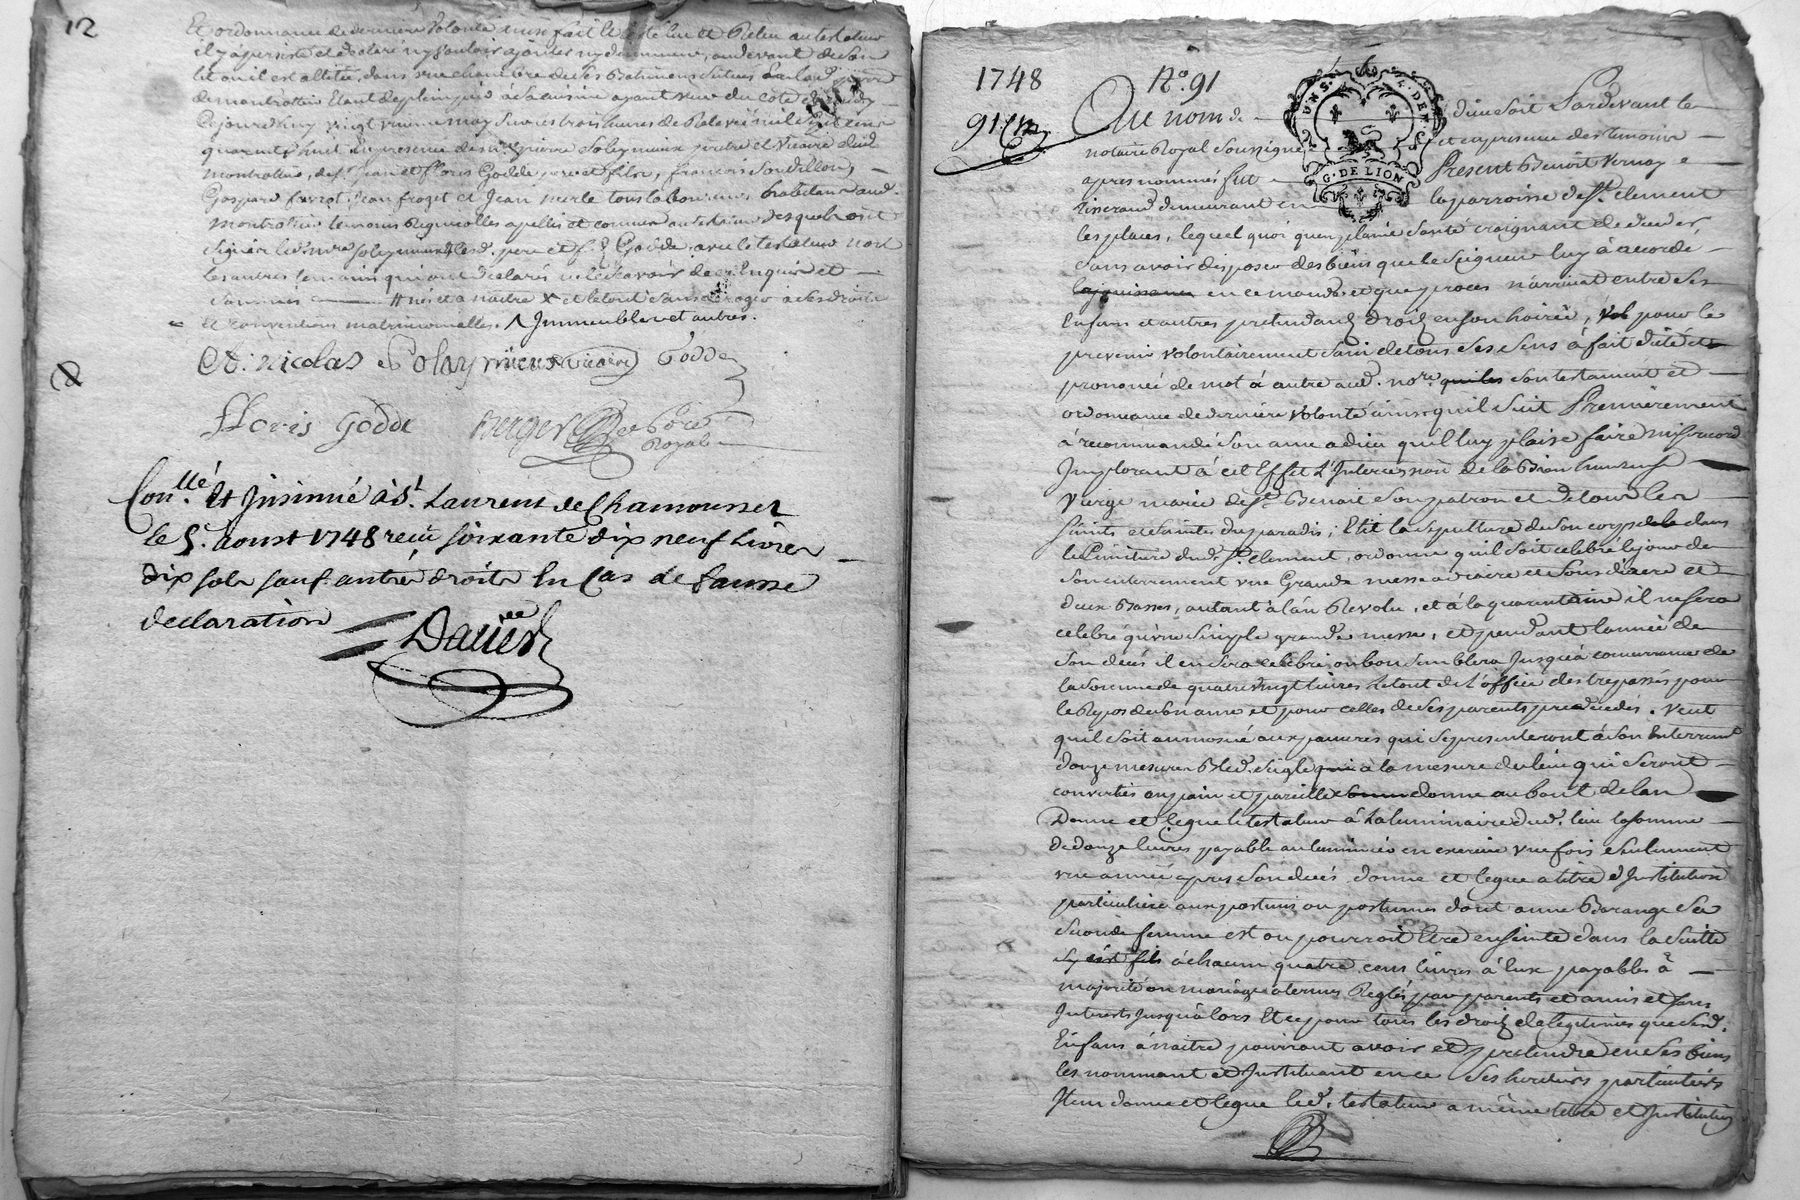 12
Et ordonnance de derniere volonté qui se fait leu et releu au testateur
il y a persisté et declaré n'y vouloir ajouter ny diminuer, au devant de son
lit ou il est allitté, dans une chambre de ses batimens
de montrottier Etant de plein pied à la cuisine ayant veue du coté
Cejourdhuy vingt may sur les trois heures de relevée mil sept cens
quarante huit En presence de pierre Soleymieux pretre et Vicaire dud
montrottier, de Jean et floris Godde pere et fils, francois
Gaspard jean frozet et Jean merle tous laboureurs habitans aud.
montrottier temoins Requis et appellés et connus au testateur desquels ont
signé Soleymieux lesd. pere et f. Godde, avec le testateur non
les autres temoins qui ont declaré ne le sçavoir de ce Enquis et
sommés nés et a naitre et le tout sans deroger à ses droits
et conventions matrimonielles. Immeubles et autres.
nicolas Solaymieux vicaire Godde
Floris Godde Berger
Royal
Con.llé et Jnsinué à St. Laurent de Chamousset
le 5. aoust 1748 receu soixante dix neuf Livres
dix sols sauf autre droits En Cas de fausse
declaration
Davier
1748 No. 91
91
Au nom de dieu soit Pardevant le
notaire Royal soussigné et en presence des temoins
apres nommés fut Present Benoit Vernay
tisserand demeurant en la parroisse de St. Clement
les places, lequel quoi qu'en pleine santé craignant de deceder,
sans avoir disposer des biens que le Seigneur luy à accordé
la jouissance en ce monde et que proces n'arrivat entre ses
Enfans et autres pretendant droit en son hoirie, pour le
prevenir volontairement sain de tous ses sens à fait dicté et
prononcé de mot à autre aud. nore. son testament et
ordonnance de derniere volonté ainsy quil suit Premierement
à recommandé son ame a dieu quil luy plaise faire misericorde
Jmplorant à cet Effet L'Intercession de la Bien heureuse
Vierge marie de St. Benoit son patron et de tous les
saints et saintes du paradis; Elit la sepulture de son corps dans
le Cimitiere dud. St. Clement, ordonne quil soit celebré le jour de
son enterrement une Grande messe a diacre et sous diacre et
deux Basses, autant à l'an Revolu, et à la quarantaine il ne sera
celebré qu'une simple grande messe, et pendant lannée de
son decés il en sera celebré, ou bon semblera Jusqu'à concurrance de
la somme de quatre vingt livres Le tout de L'office des trepassés pour
le Repos de son ame et pour celles de ses parents predecedés. Veut
qu'il soit aumosné aux pauvres qui se presenteront à son Enterrement
douze mesures Bled seigle a la mesure du lieu qui seront
converties en pain et pareille donne au bout de lan
Donne et legue le testateur à La luminaire dud. lieu la somme
de douze livres payable au luminier en exercice une fois seulement
une année apres son decés donne et legue a titre d'Jnstitution
particuliere aux postume ou postumes dont anne Barange sa
seconde femme est ou pourroit Etre enceinte dans la suitte
à chacun quatre cens livres à Eux payables à
majorité ou mariage a termes Reglés par parents et amis et sans
Interests jusqu'alors Et ce pour tous les droits de legitimes que sesd.
Enfans à naitre pourront avoir et pretendre en ses biens
les nommant et Jnstituant en ce ses heritiers particuliers
Jtem donne et legue led. testateur a même titre et Jnstitution